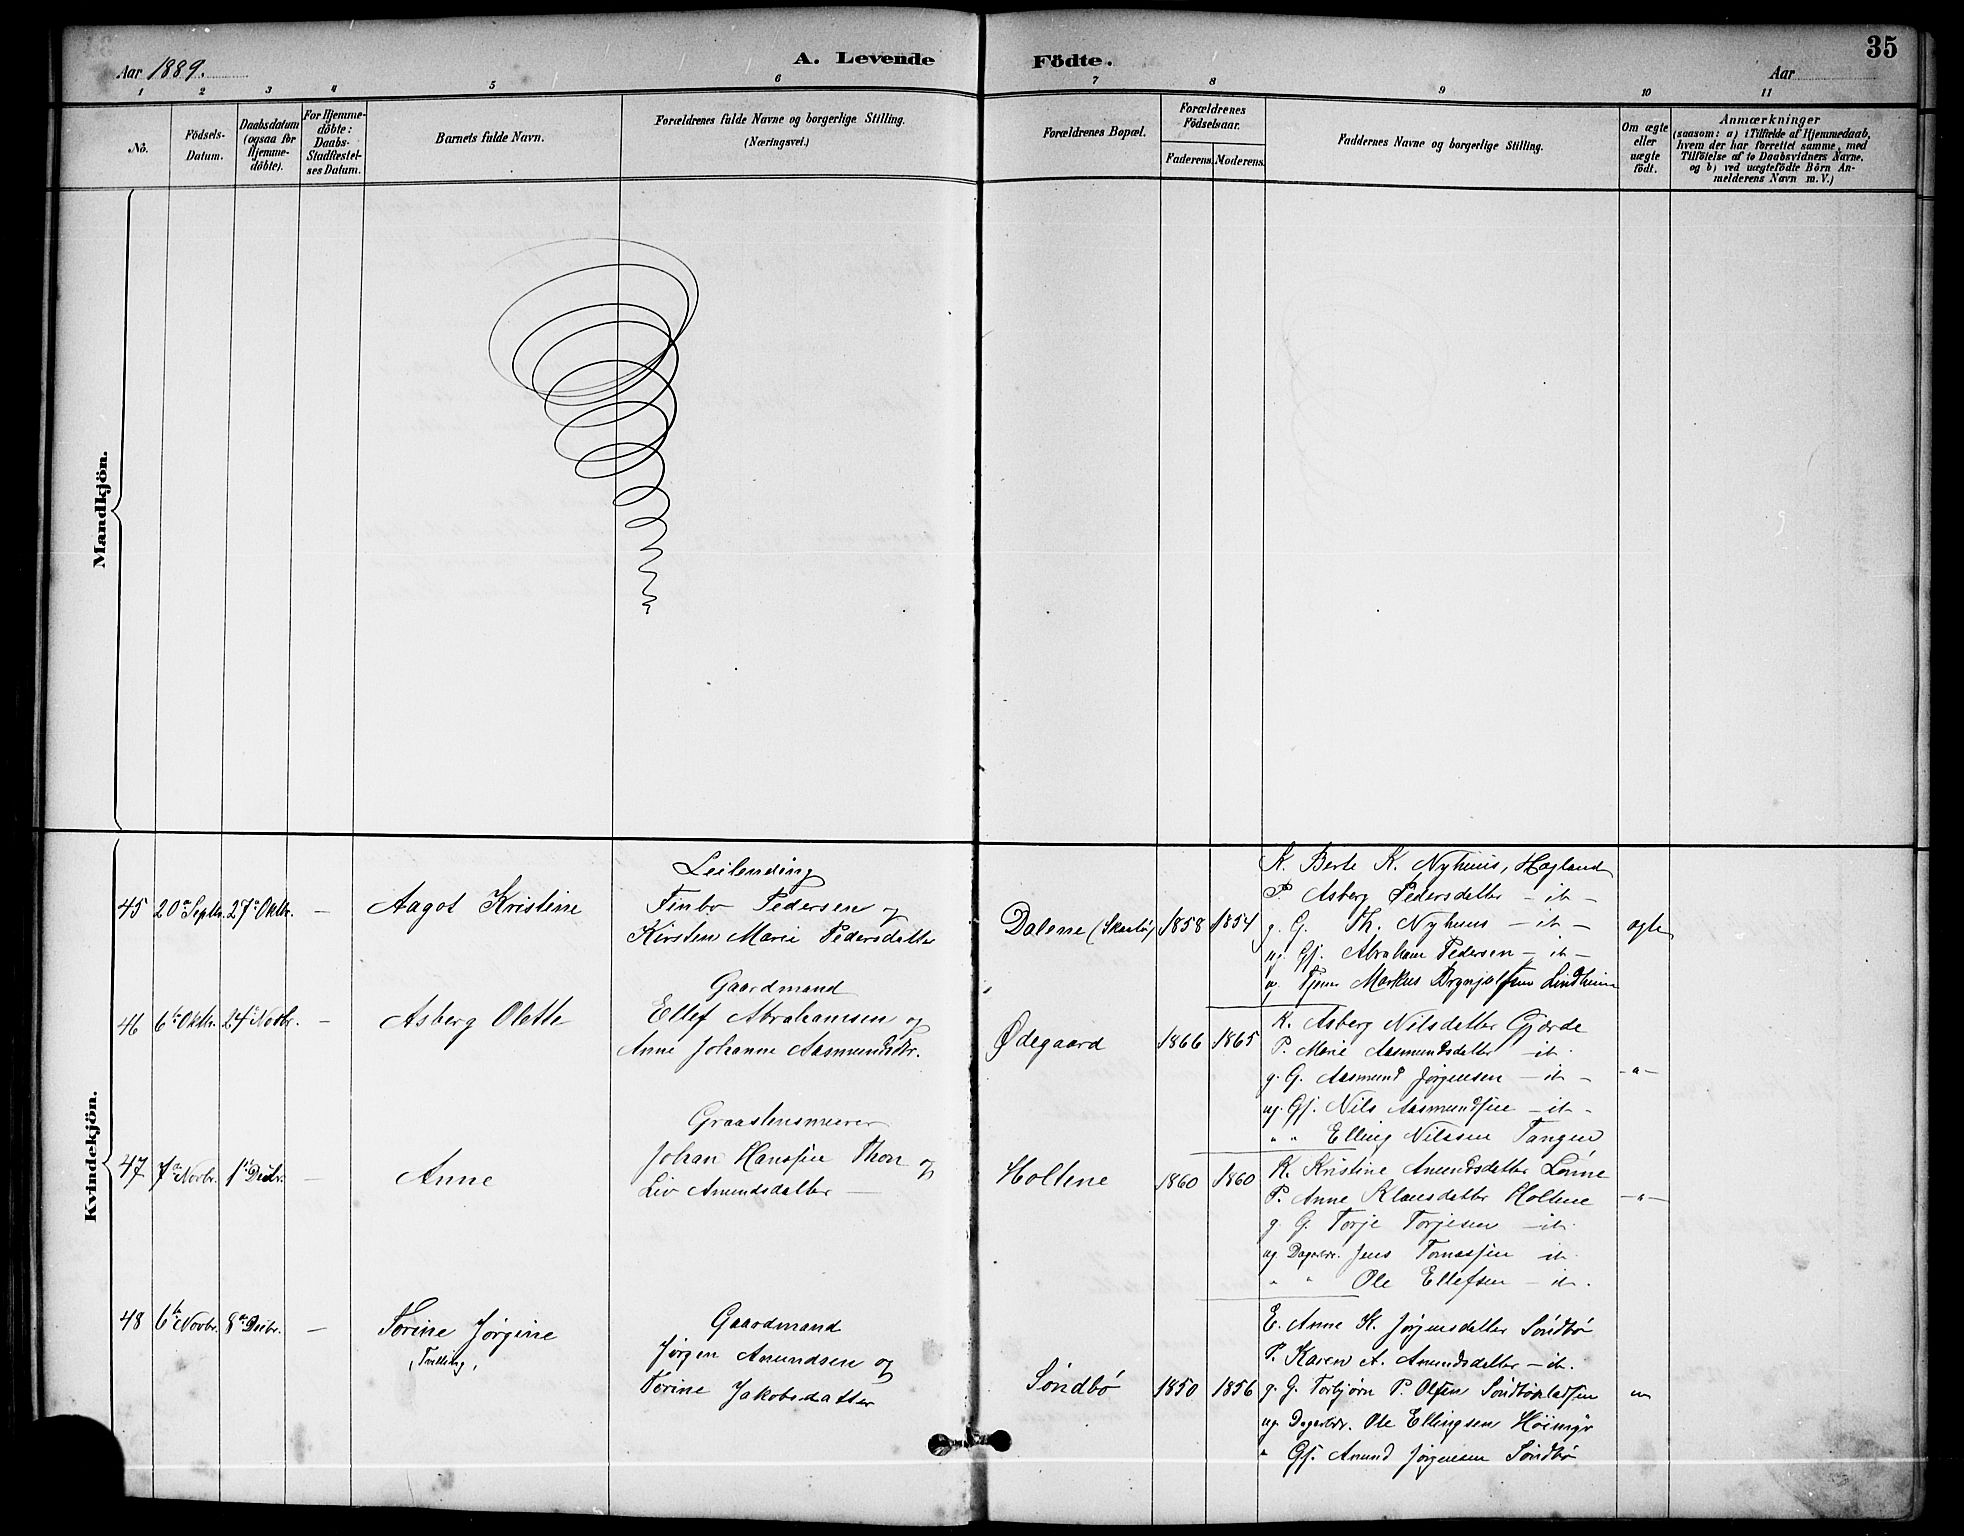 Aar 1889.
A. Levende Födte.
Aar
35
1 2 3 4 5 6 7 8 9 10 11
No.
Födsels-
Datum.
Daabsdatum
(ogsaa for
Hjemme-
döbte).
For Hjemme-
döbte:
Daabs-
Stadfæstel-
ses Datum.
Barnets fulde Navn.
Forældrenes fulde Navne og borgerlige Stilling.
(Næringsvei.)
Forældrenes Bopæl.
Forældrenes
Födselsaar.
Faderens.
Moderens.
Faddernes Navne og borgerlige Stilling.
Om ægte
eller
uægte
födt.
Anmærkninger
(saasom: a) i Tilfælde af Hjemmedaab,
hvem der har forrettet samme, med
Tilföielse af to Daabsvidners Navne.
og b) ved uægtefödte Börn An-
melderens Navn m. V.)
Mandkjön.
Kvindekjön.
45 20de Septbr. 27de Oktbr. — Aagot Kristine
Leilending
Finbo Pedersen og
Kirsten Marie Pedersdatter
Dalene 1858 1854
K. Berte K. Nyhuus, Hogland
P. Asberg Pedersdatter — it —
g. G. Th. Nyhuus — it —
ug. Gj. Abraham Pedersen — it —
ug. Tjener Markus Brynjulfsen Lindheim
ægte
46 6te Oktbr. 24de Novbr. — Asberg Olette
Gaardmand
Ellef Abrahamsen og
Anne Johanne Aasmundsdtr.
Ødegaard 1866 1865
K. Asberg Nilsdatter Gjerde
P. Marie Aasmundsdatter — it.
g. G. Aasmund Jørgensen — it —
ug. Gj. Nils Aasmundsen — it —
" " Elling Nilssen Tangen
— " —
47 7de Novbr. 1ste Decbr. — Anne
Graastensmurer
Johan Hanssen Thon og
Liv Amundsdatter —
Holtene 1860 1860
K. Kristine Amundsdatter Lønne
P. Anne Klausdatter Holtene
g. G. Torje Torjesen — it.
ug. Dagarbdr. Jens Tomassen it.
" " Ole Ellefsen — it.
— " —
48 6te Novbr. 8de Decbr. — Torine Jørgine
(Tvilling)
Gaardmand
Jørgen Amundsen og
Torine Jakobsdatter
Søndbø 1850 1856
E. Anne K. Jørgensdatter Søndbø
P. Karen A. Amundsdatter — it.
g. G. Torbjørn P. Olsen Søndbøpladsen
ug. Dagarbdr. Ole Ellingsen Høimyr
" Gj. Amund Jørgensen Søndbø
"